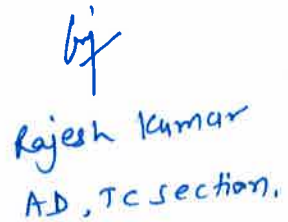 Rajesh Kumar
AD, TC section.